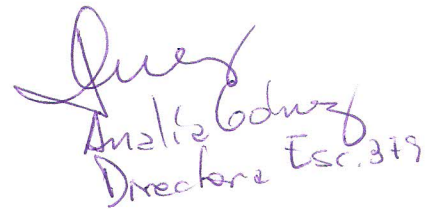 Analía Godnez
Directora Esc. 379